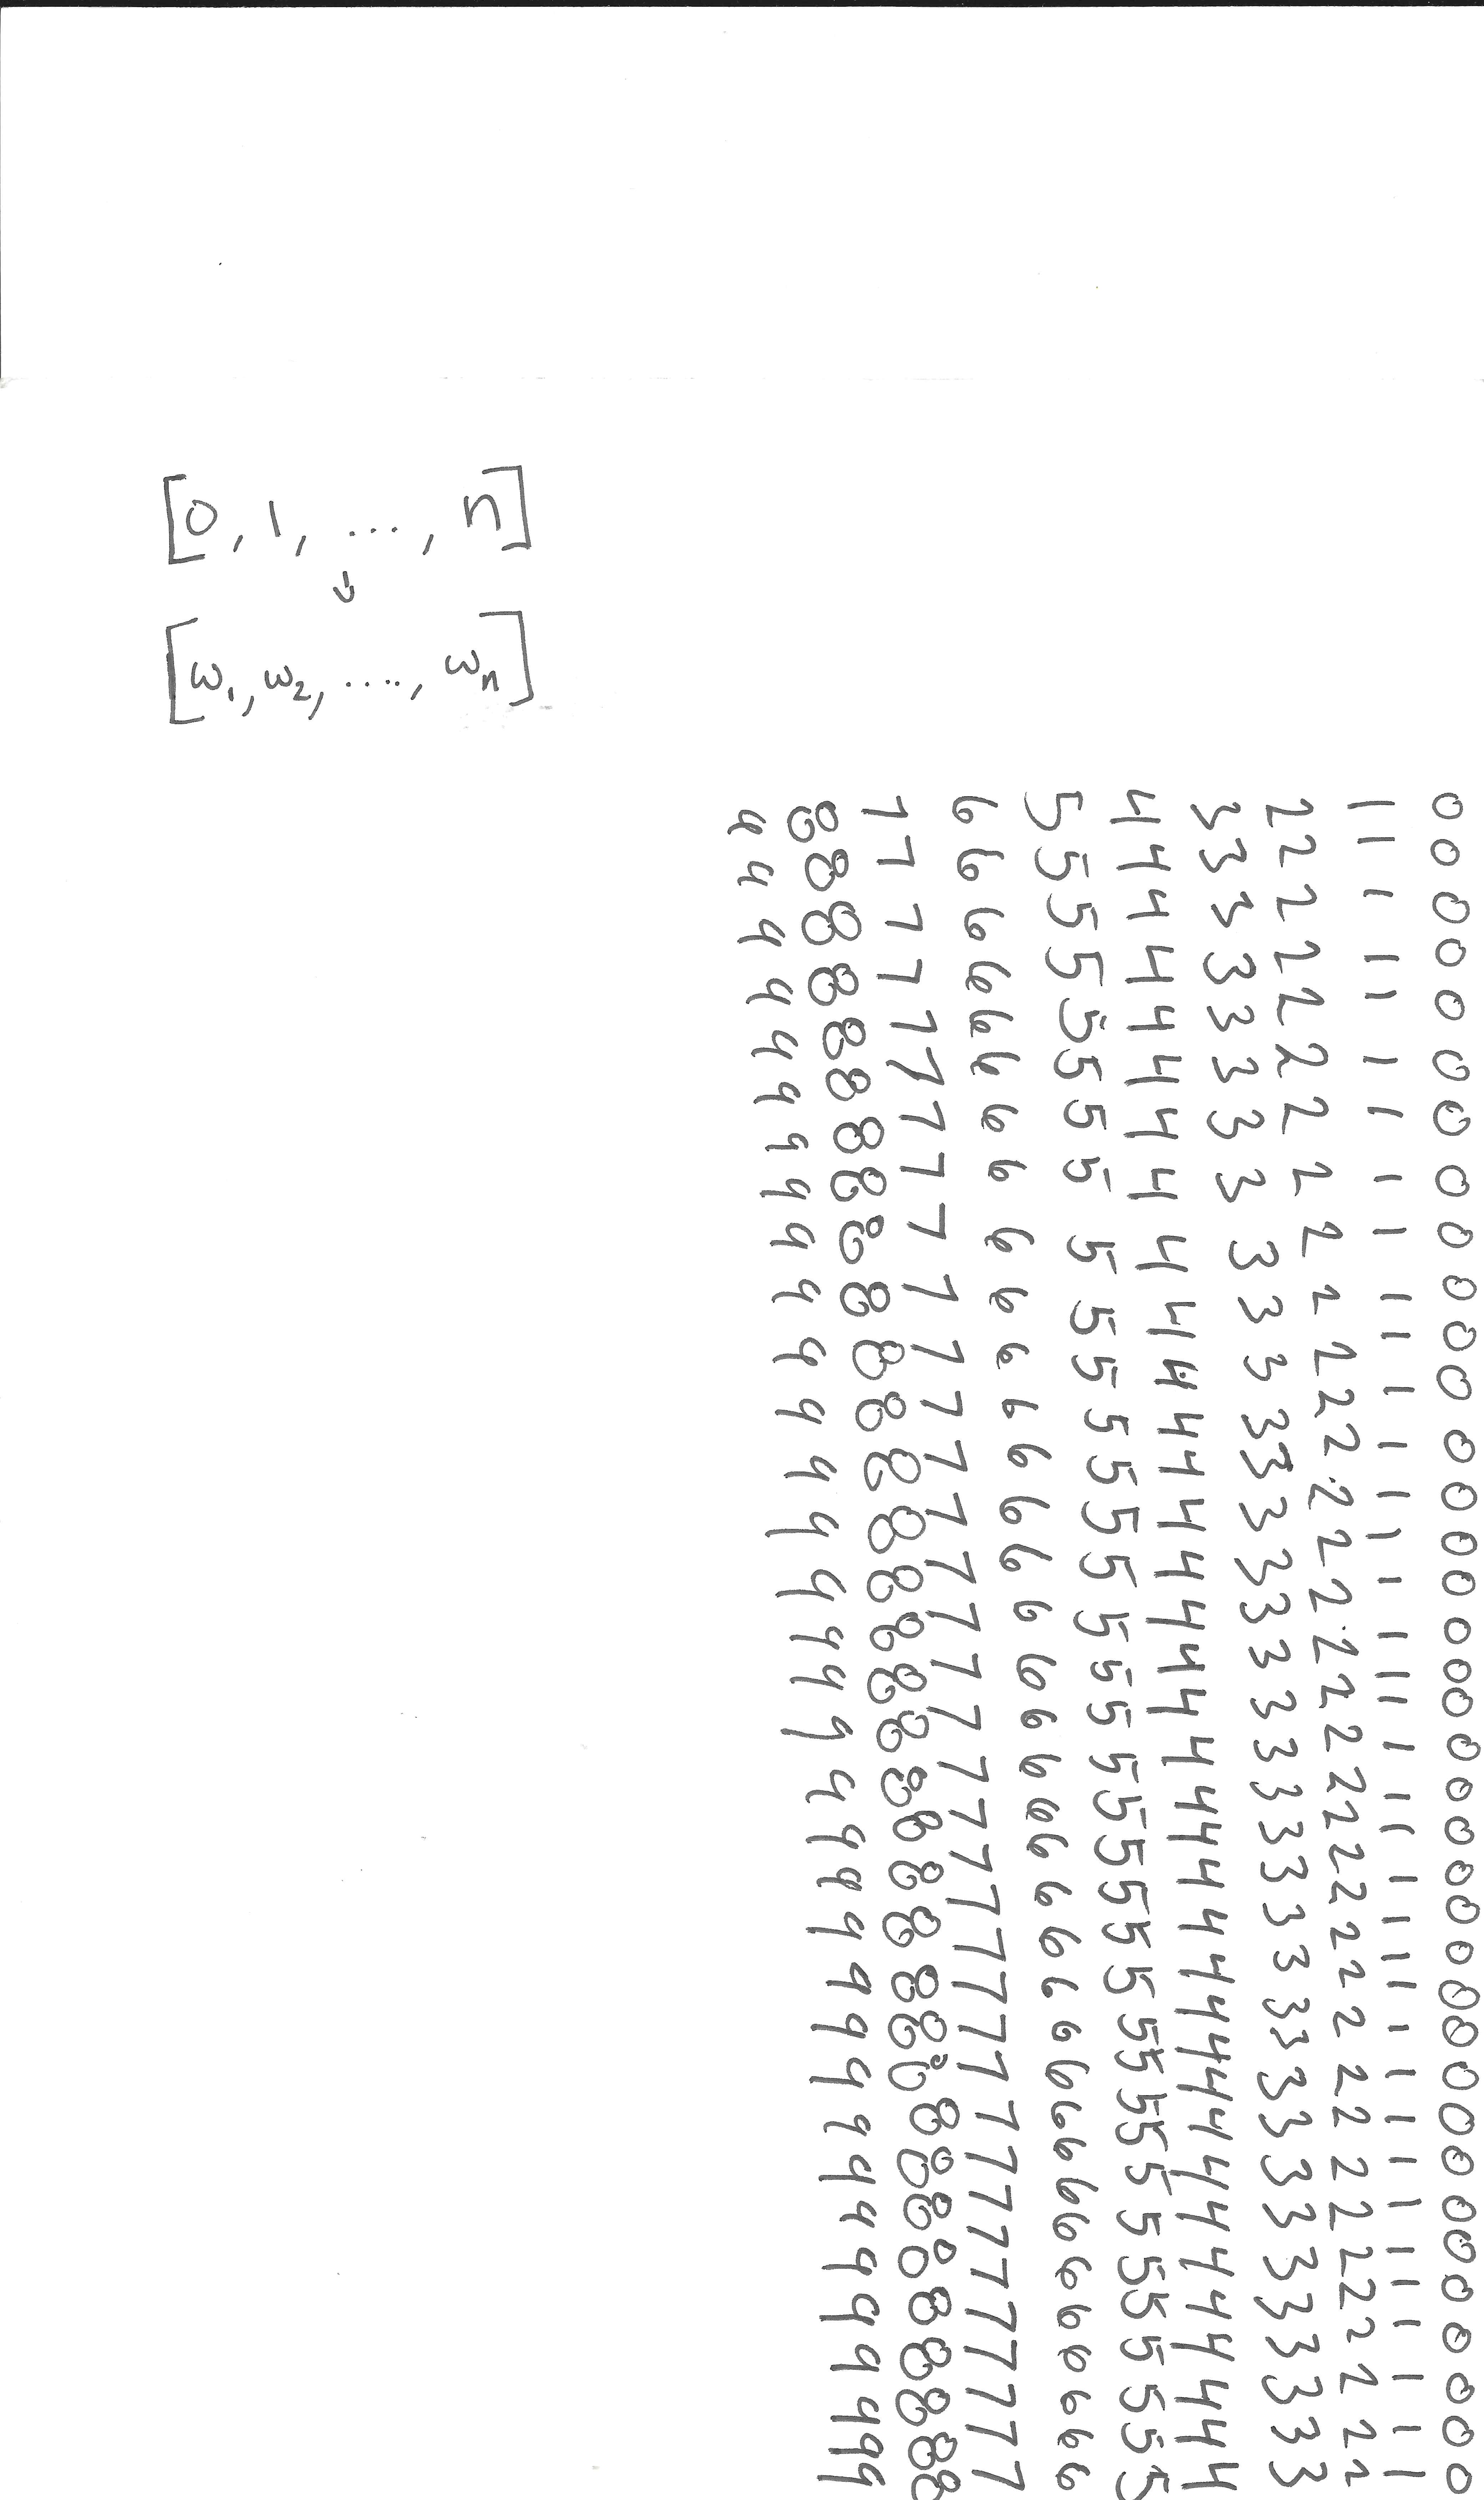 [0, 1, ..., n]
[ω1, ω2, ...., ωn]
0000000000000000000000000000000000000
1111111111111111111111111111111111111
222222222222222222222222222222222222
333333333333333333333333333333333333
444444444444444444444444444444444444
555555555555555555555555555555555555
666666666666666666666666666666666666
777777777777777777777777777777777777
888888888888888888888888888888888888
9999999999999999999999999999999999